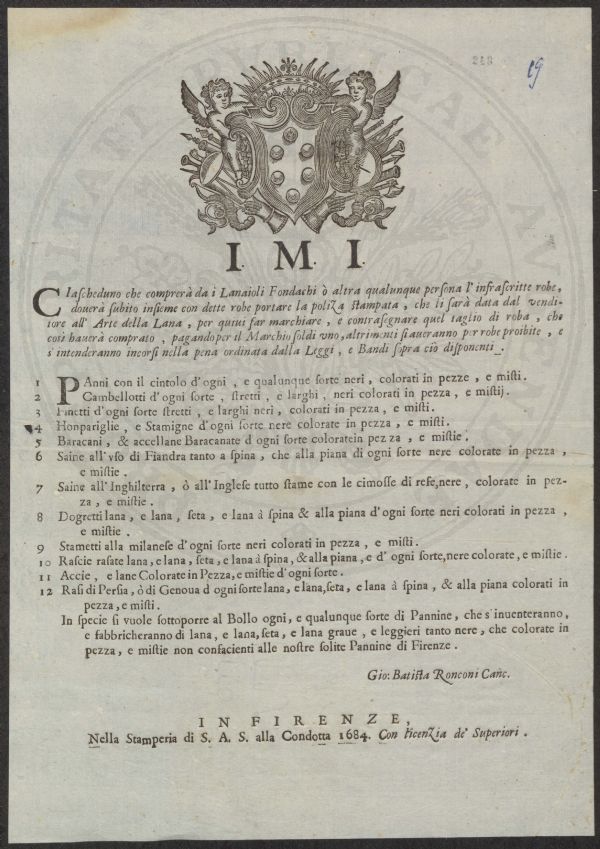 248
19
I. M. I.
Ciascheduno che comprerà da i Lanaioli Fondachi ò altra qualunque persona l'infrascritte robe,
douerà subito insieme con dette robe portare la poliza stampata, che li sarà data dal vendi-
tore all'Arte della Lana, per quiui far marchiare, e contrasegnare quel taglio di roba, che
così hauerà comprato, pagando per il Marchio soldi vno, altrimenti si aueranno per robe proibite, e
s'intenderanno incorsi nella pena ordinata dalla Leggi, e Bandi sopra ciò disponenti.
1 PAnni con il cintolo d'ogni, e qualunque sorte neri, colorati in pezze, e misti.
2 Cambellotti d'ogni sorte, stretti, e larghi, neri colorati in pezza, e mistij.
3 Finetti d'ogni sorte stretti, e larghi neri, colorati in pezza, e misti.
4 Honpariglie, e Stamigne d'ogni sorte nere colorate in pezza, e misti.
5 Baracani, & accellane Baracanate d ogni sorte coloratein pezza, e mistie.
6 Saine all'vso di Fiandra tanto a spina, che alla piana di ogni sorte nere colorate in pezza,
e mistie.
7 Saine all'Inghilterra, ò all'Inglese tutto stame con le cimosse di refe, nere, colorate in pez-
za, e mistie.
8 Dogretti lana, e lana, seta, e lana à spina & alla piana d'ogni sorte neri colorati in pezza,
e mistie.
9 Stametti alla milanese d'ogni sorte neri colorati in pezza, e misti.
10 Rascie rasate lana, e lana, seta, e lana à spina, & alla piana, e d'ogni sorte, nere colorate, e mistie.
11 Accie, e lane Colorate in Pezza, e mistie d'ogni sorte.
12 Rasi di Persia, ò di Genoua d ogni sorte lana, e lana, seta, e lana à spina, & alla piana colorati in
pezza, e misti.
In specie si vuole sottoporre al Bollo ogni, e qualunque sorte di Pannine, che s'inuenteranno,
e fabbricheranno di lana, e lana, seta, e lana graue, e leggieri tanto nere, che colorate in
pezza, e mistie non confacienti alle nostre solite Pannine di Firenze.
Gio: Batista Ronconi Canc.
IN FIRENZE,
Nella Stamperia di S. A. S. alla Condotta 1684. Con licenzia de' Superiori.